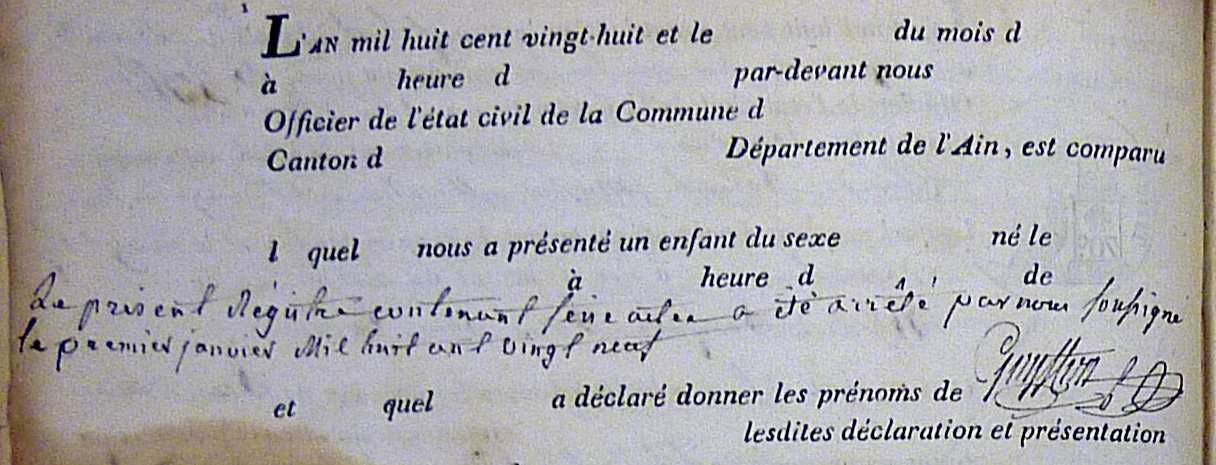 L'AN mil huit cent vingt-huit et le du mois d
à heure d par-devant nous
Officier de l'état civil de la Commune d
Canton d Département de l'Ain, est comparu
l quel nous a présenté un enfant du sexe né le
à heure d de
Le présent Régistre contenant seize actes a été arrêté par nous soussigné
le premier janvier Mil huit cent vingt neuf
et quel a déclaré donner les prénoms de
lesdites déclaration et présentation